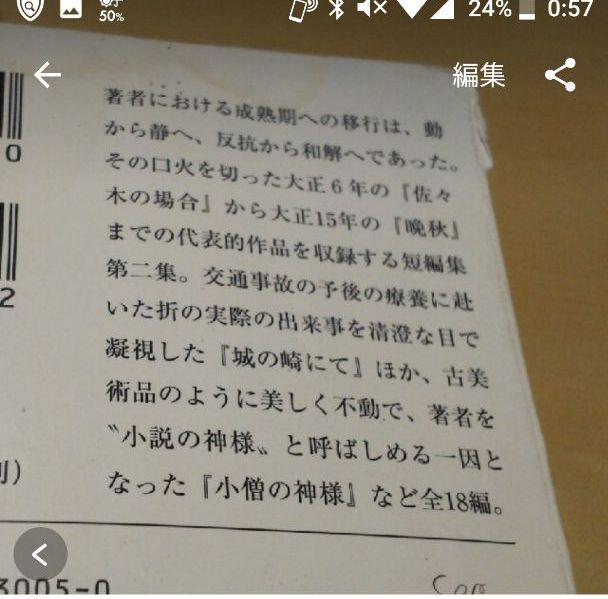 50%
24% 0:57
編集
著者における成熟期への移行は、動
から静へ、反抗から和解へであった。
その口火を切った大正6年の『佐々
木の場合』から大正15年の『晩秋』
までの代表的作品を収録する短編集
第二集。交通事故の予後の療養に赴
いた折の実際の出来事を清澄な目で
凝視した『城の崎にて』ほか、古美
術品のように美しく不動で、著者を
〝小説の神様〟と呼ばしめる一因と
なった『小僧の神様』など全18編。
0
2
3005-0